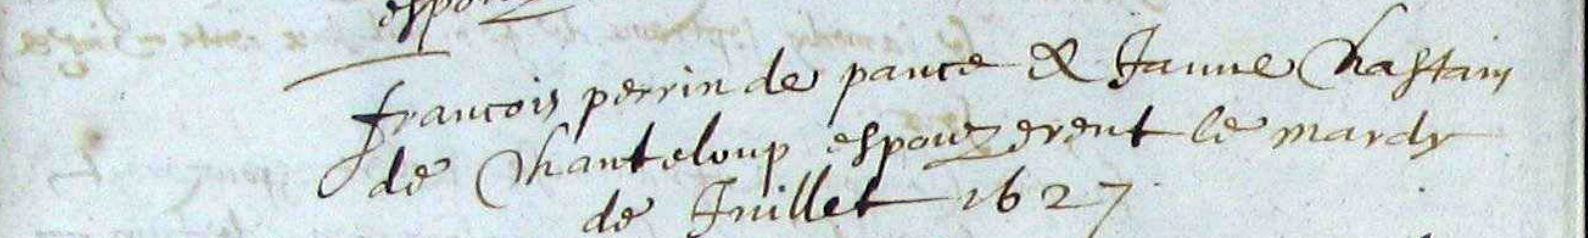 françois perrin de pance & Janne Chastain
de Chanteloup espouzerent le mardy
de Juillet 1627